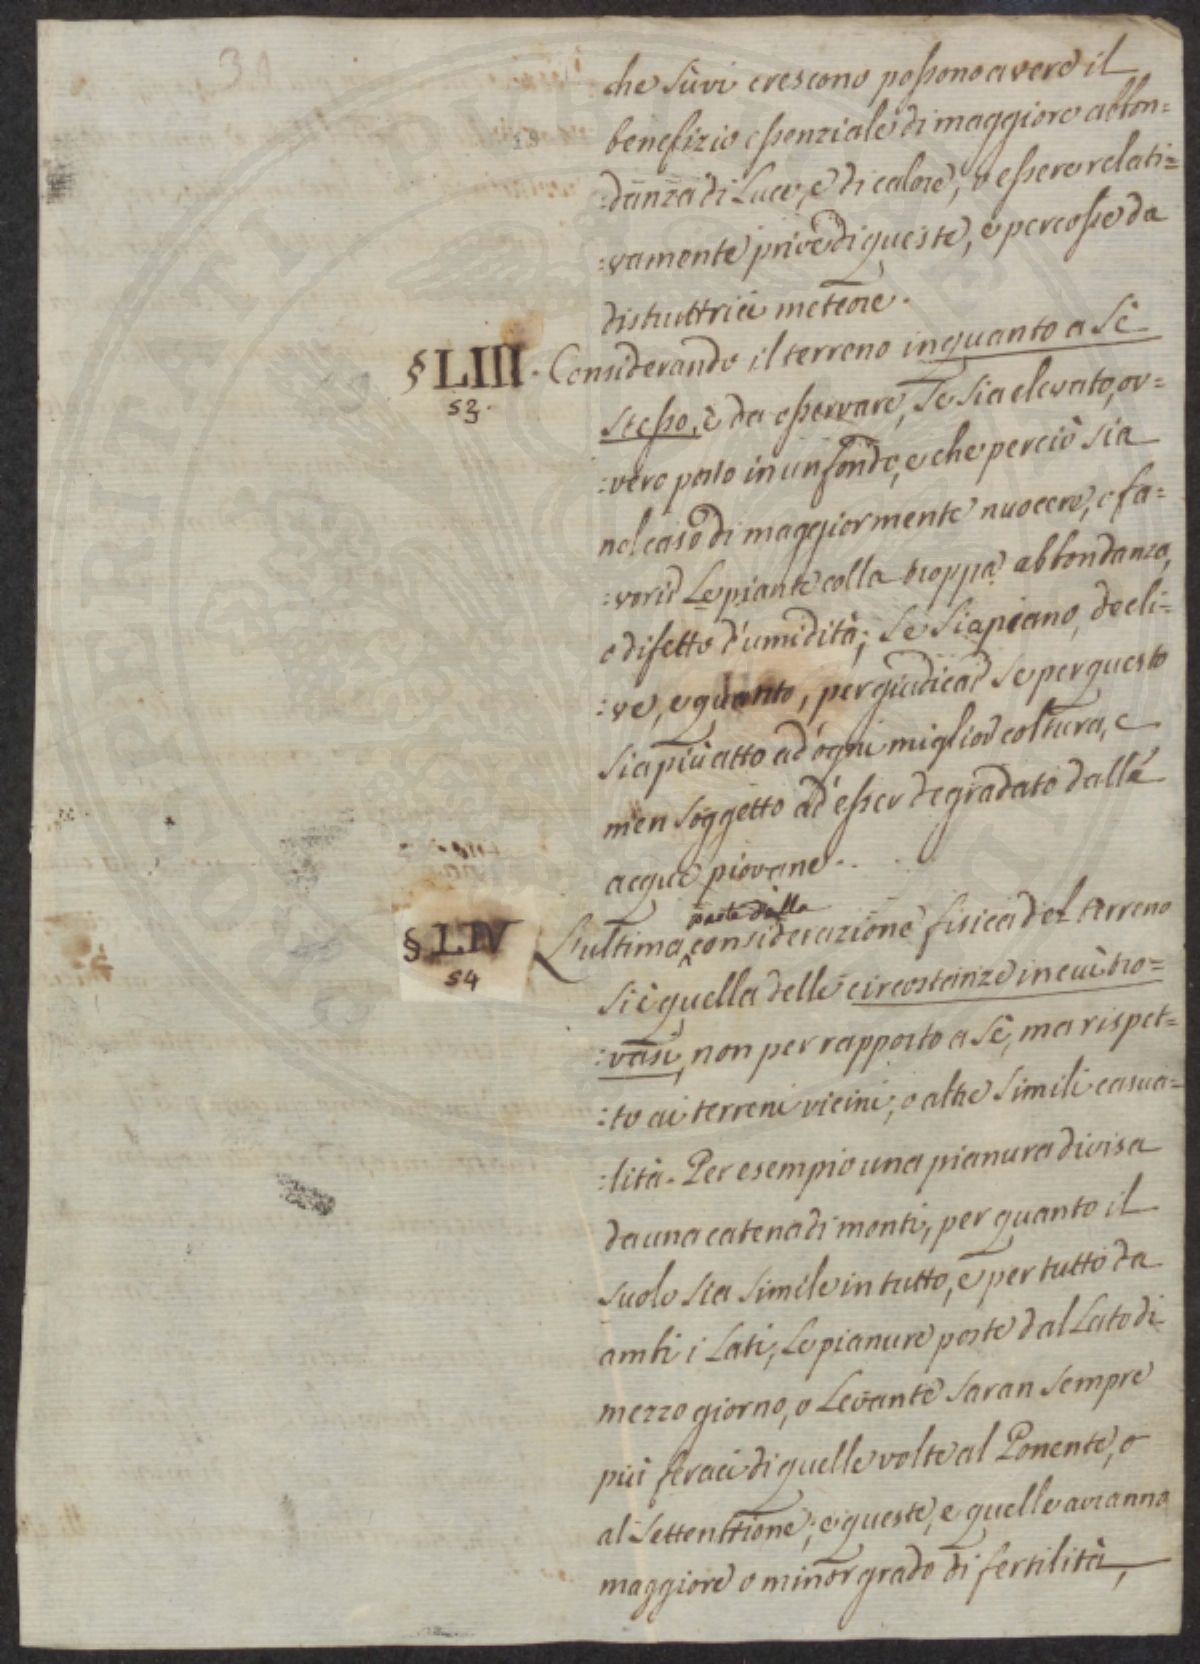 che Sùvi crescono possono avere il
benefizio essenziale di maggiore abbon=
:danza di Luce, e di calore, o essere relati=
:vamente prive di queste, e percosse da
distruttrici meteore.
§ LIII. Considerando il terreno inquanto a Sè
53.
Stesso, è da osservare, Se Sia elevato, ov=
:vero posto in un fondo, e che perciò Sia
nel caso di maggiormente nuocere, o fa=
:vorir Le piante colla troppa abbondanza,
o difetto d'umidità; Se Sia piano, decli=
:ve, e quanto, per giudicar Se per questo
Sia più atto ad ogni miglior coltura, e
men Soggetto ad esser degradato dalle
acque piovane.
parte della
§ LIV L'ultima considerazione fisica del terreno
54
Si è quella delle circostanze in cui tro=
:vasi, non per rapporto a Sè, ma rispet=
:to ai terreni vicini, o altre Simili casua=
:lità. Per esempio una pianura divisa
da una catena di monti, per quanto il
suolo Sia Simile in tutto, e per tutto da
ambi i Lati, Le pianure poste dal Lato di
mezzo giorno, o Levante Saran Sempre
più feraci di quelle volte al Ponente, o
al Settentrione; e queste, e quelle avranno
maggiore o minor grado di fertilità,